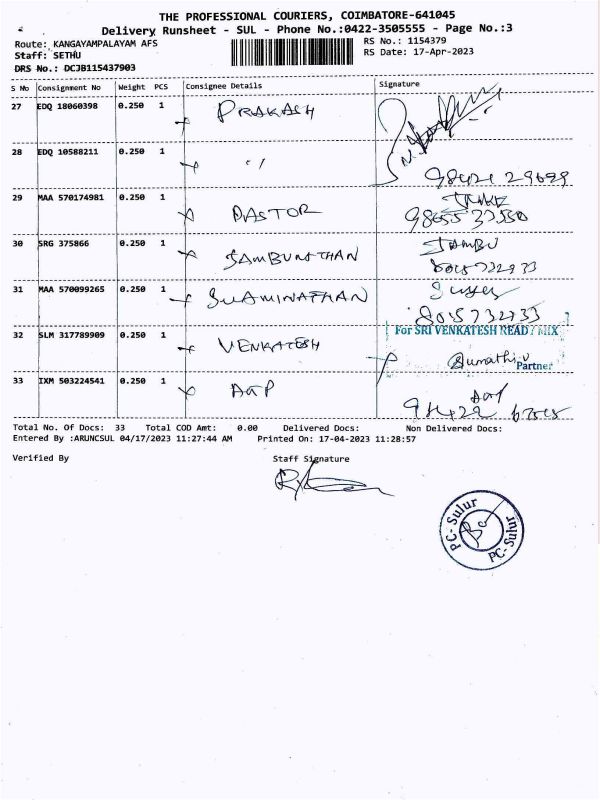 THE PROFESSIONAL COURIERS, COIMBATORE-641045
Delivery Runsheet - SUL - Phone No.:0422-3505555 - Page No.:3
Route: KANGAYAMPALAYAM AFS RS No.: 1154379
Staff: SETHU RS Date: 17-Apr-2023
DRS No.: DCJB115437903
S No Consignment No Weight PCS Consignee Details Signature
27 EDQ 18060398 0.250 1 PRAKASH
28 EDQ 10588211 0.250 1 〃
98421 29699
29 MAA 570174981 0.250 1 PASTOR
98655 33550
30 SRG 375866 0.250 1 SAMBUNATHAN JAMBU
8015732933
31 MAA 570099265 0.250 1 SWAMINATHAN
8015732733
For SRI VENKATESH READY MIX
32 SLM 317789909 0.250 1 VENKATESH Sumathi.v
Partner
33 IXM 503224541 0.250 1 AGP
Total No. Of Docs: 33 Total COD Amt: 0.00 Delivered Docs: Non Delivered Docs:
Entered By :ARUNCSUL 04/17/2023 11:27:44 AM Printed On: 17-04-2023 11:28:57
Verified By Staff Signature
PC-Sulur
PC-Sulur